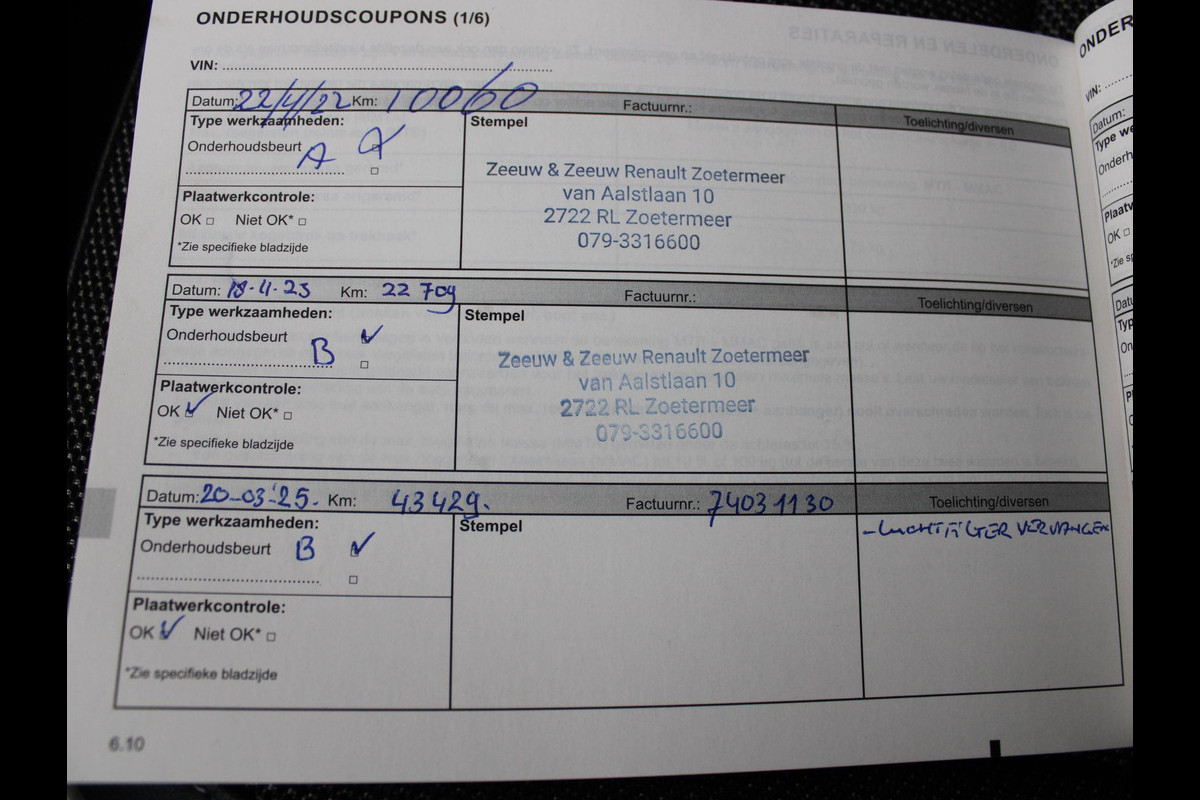 ONDERHOUDSCOUPONS (1/6)
VIN:
Datum: 22/4/22 Km: 10060 Factuurnr.: Toelichting/diversen
Type werkzaamheden: Stempel
Onderhoudsbeurt A
Zeeuw & Zeeuw Renault Zoetermeer
van Aalstlaan 10
2722 RL Zoetermeer
079-3316600
Plaatwerkcontrole:
OK □ Niet OK* □
*Zie specifieke bladzijde
Datum: 18-4-23 Km: 22 709 Factuurnr.: Toelichting/diversen
Type werkzaamheden: Stempel
Onderhoudsbeurt B ✓
Zeeuw & Zeeuw Renault Zoetermeer
van Aalstlaan 10
2722 RL Zoetermeer
079-3316600
Plaatwerkcontrole:
OK ✓ Niet OK* □
*Zie specifieke bladzijde
Datum: 20-03-'25. Km: 43429. Factuurnr.: 74031130 Toelichting/diversen
Type werkzaamheden: Stempel
- LUCHTFILTER VERVANGEN
Onderhoudsbeurt B ✓
Plaatwerkcontrole:
OK ✓ Niet OK* □
*Zie specifieke bladzijde
6.10
ONDER
VIN:
Datum:
Type we
Onderh
Plaatw
OK □
*Zie s
Datu
Typ
On